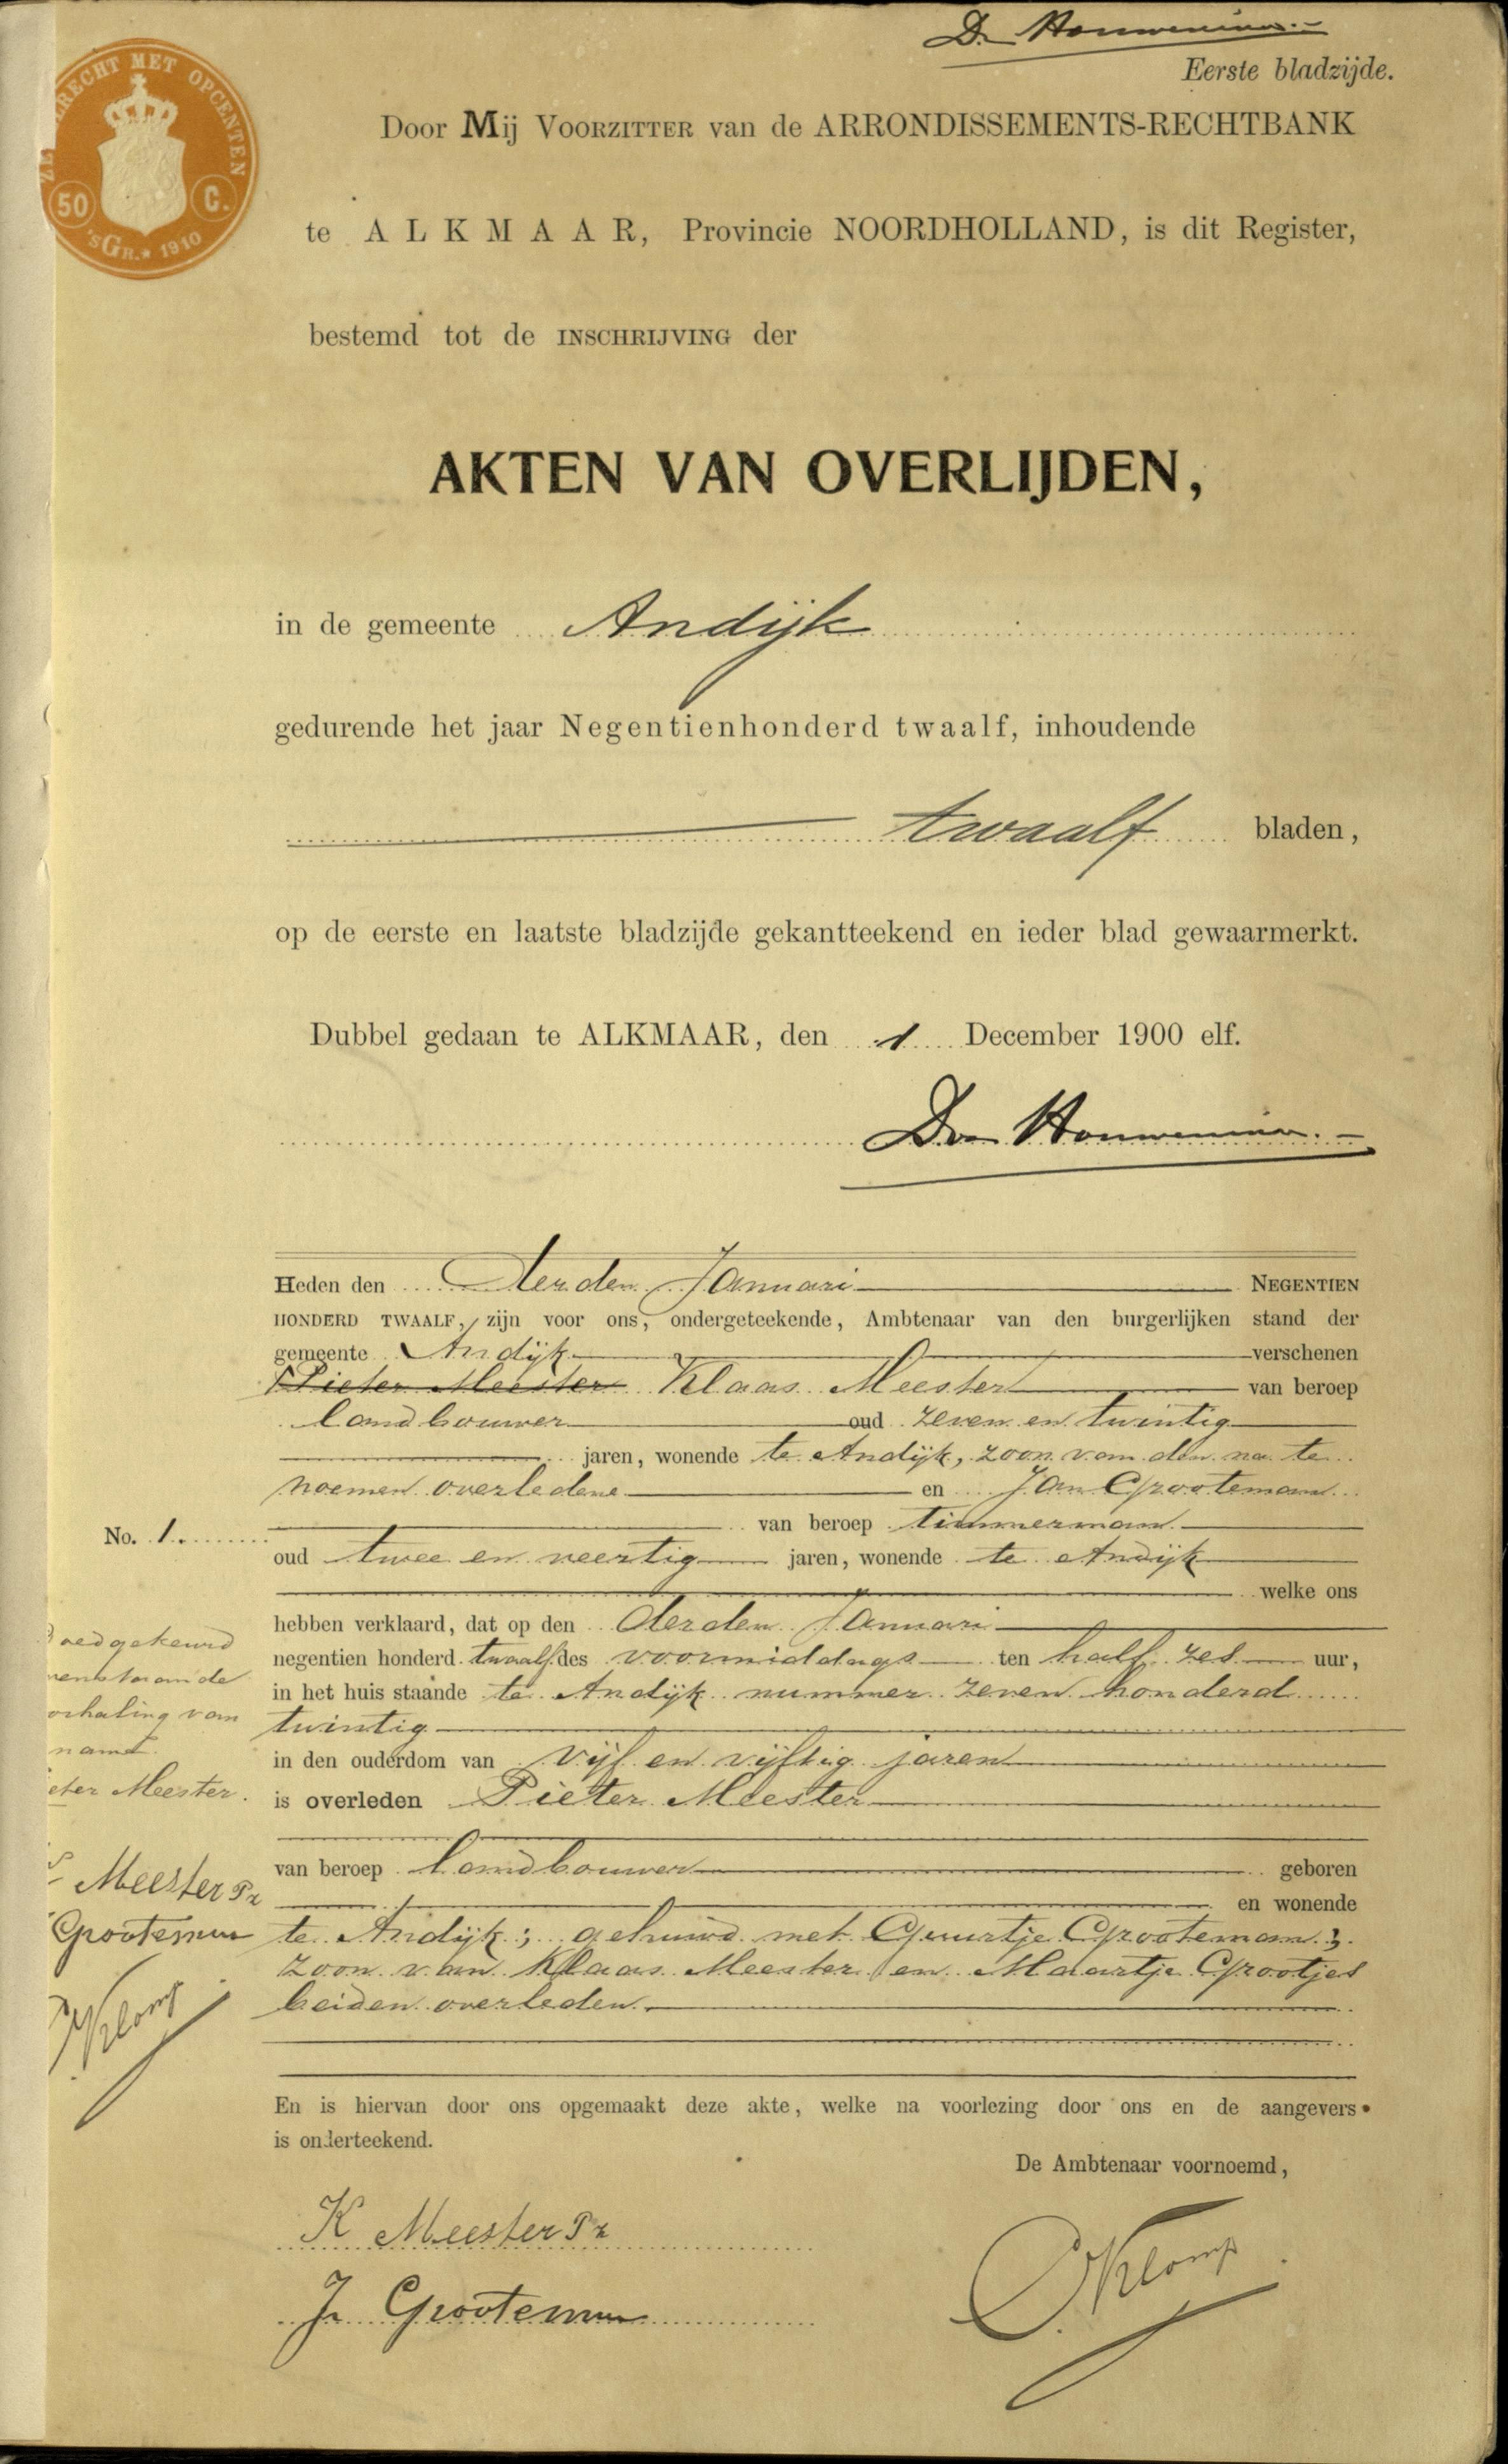 Eerste bladzijde.
ZEGELRECHT MET OPCENTEN
50 C.
'sGR. 1910
Door Mij VOORZITTER van de ARRONDISSEMENTS-RECHTBANK
te ALKMAAR, Provincie NOORDHOLLAND, is dit Register,
bestemd tot de INSCHRIJVING der
AKTEN VAN OVERLIJDEN,
in de gemeente Andijk
gedurende het jaar Negentienhonderd twaalf, inhoudende
twaalf bladen,
op de eerste en laatste bladzijde gekantteekend en ieder blad gewaarmerkt.
Dubbel gedaan te ALKMAAR, den 1 December 1900 elf.
Heden den derden Januari NEGENTIEN
HONDERD TWAALF, zijn voor ons, ondergeteekende, Ambtenaar van den burgerlijken stand der
gemeente Andijk verschenen
Pieter Meester Klaas Meester van beroep
landbouwer oud zeven en twintig
jaren, wonende te Andijk, zoon van den na te
noemen overledene en Jan Grooteman
van beroep timmerman
No. 1.
oud twee en veertig jaren, wonende te Andijk
welke ons
hebben verklaard, dat op den derden Januari
negentien honderd twaalf des voormiddags ten half zes uur,
in het huis staande te Andijk nummer zeven honderd
twintig
in den ouderdom van vijf en vijftig jaren
is overleden Pieter Meester
van beroep landbouwer geboren
en wonende
te Andijk; gehuwd met Guurtje Grooteman;
zoon van Klaas Meester en Maartje Grootjes
beiden overleden.
oedgekeurd
venstaande
orhaling van
namt
eter Meester.
Meester Pz
Grooteman
Klomp
En is hiervan door ons opgemaakt deze akte, welke na voorlezing door ons en de aangevers
is onderteekend.
De Ambtenaar voornoemd,
K Meester Pz
J. Grooteman
Klomp